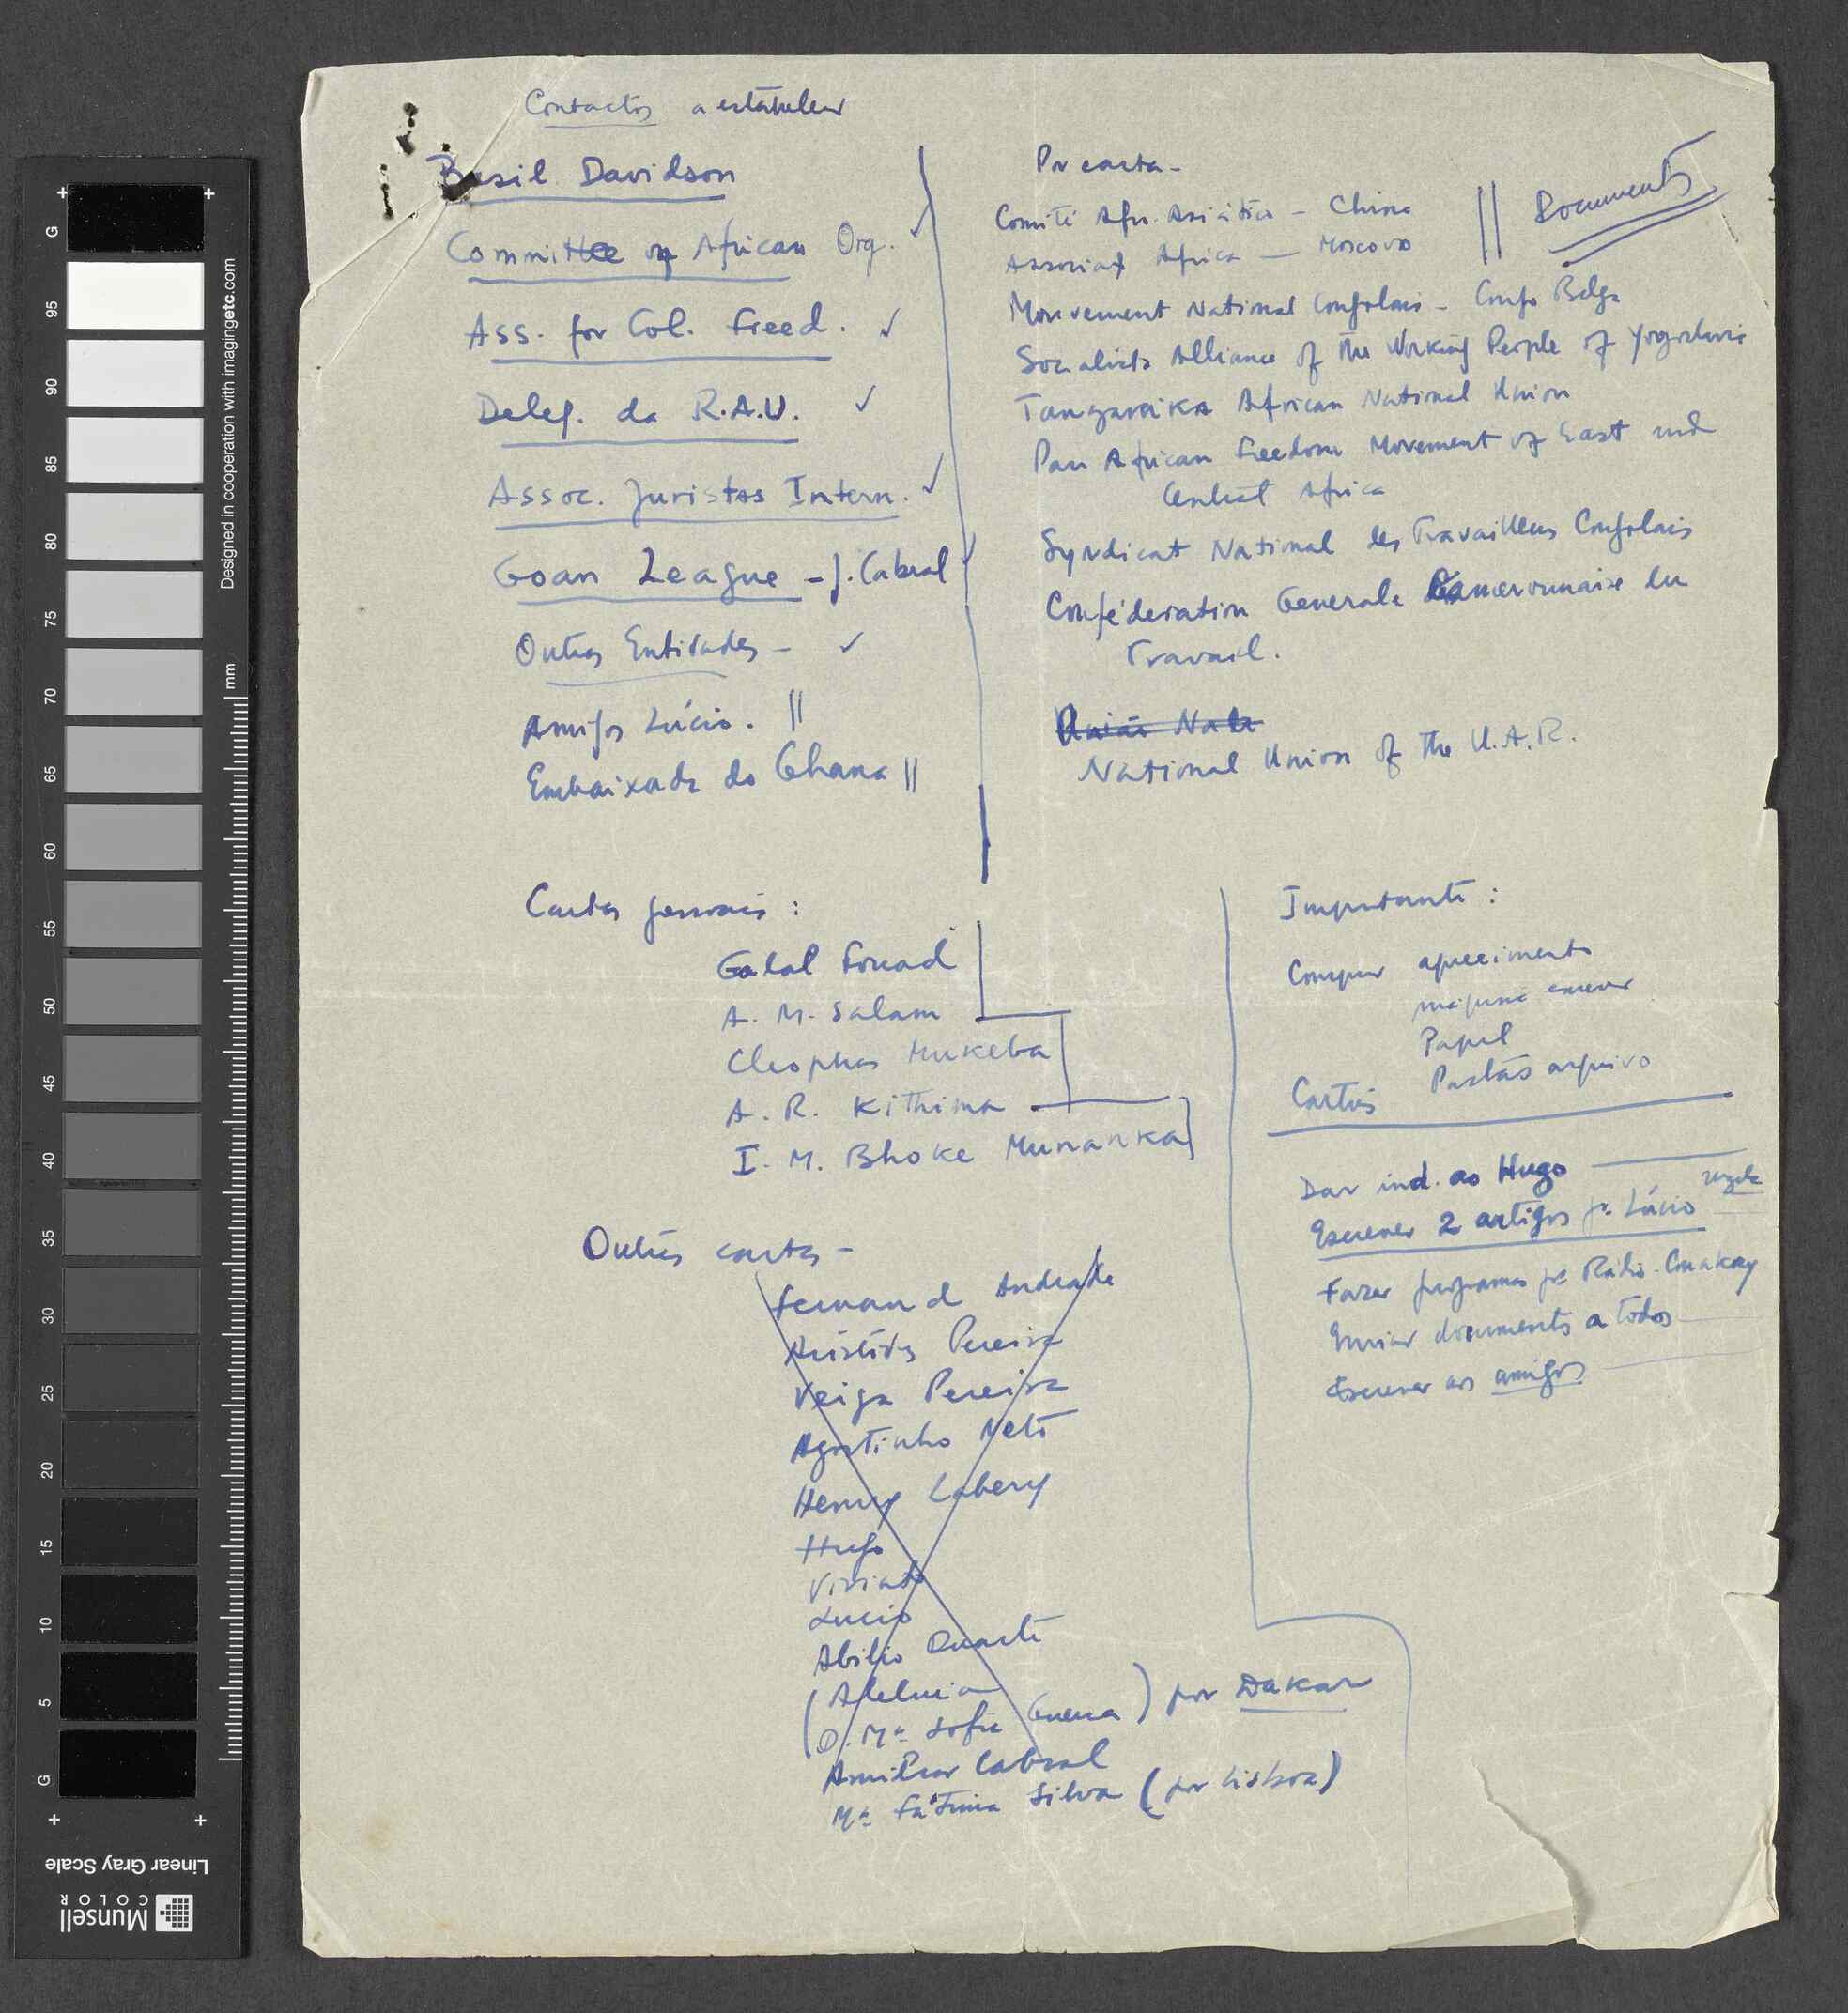 Contactos a estabelecer
Basil Davidson
Committee of African Org. ✓
Ass. for Col. Freed. ✓
Deleg. da R.A.U. ✓
Assoc. Juristas Intern. ✓
Goan League - J. Cabral ✓
Outras Entidades - ✓
Amigos Lúcio. ||
Embaixada do Ghana ||
Por carta -
Comité Afro-Asiático - China || Documentos
Associaç Africa - Moscovo
Mouvement National Congolais - Congo Belga
Socialists Alliance of the Working People of Yogoslavia
Tanganaika African National Union
Pan African Freedom Movement of East and
Central Africa
Syndicat National des Travailleus Congolais
Conféderation Generale Kamerounaise du
Travail.
National Union of the U.A.R.
Cartas pessoais :
Galal Fouad
A. M. Salam
Cleophas Mukeba
A. R. Kithima
I. M. Bhoke Munanka
Outras cartas -
Fernand Andrade
Aristides Pereira
Veiga Pereira
Agostinho Neto
Henry Labery
Hugo
Viriato
Lucio
Abilio Duarte
(Aleluia
D. Mª Sofia Guerra) por Dakar
Amilcar Cabral
Mª Fátima Silva (por Lisboa)
Importante :
Comprar
maquina escrever
Papel
Pastas arquivo
Dar ind. ao Hugo
Escrever 2 artigos pª Lúcio
Fazer programas pª Rádio-Conakry
Enviar documentos a todos
Escrever aos amigos
G
95
90
85
80
75
70
65
60
55
50
45
40
35
30
25
20
15
10
5
G
mm
Designed in cooperation with imagingetc.com
Linear Gray Scale
Munsell
COLOR